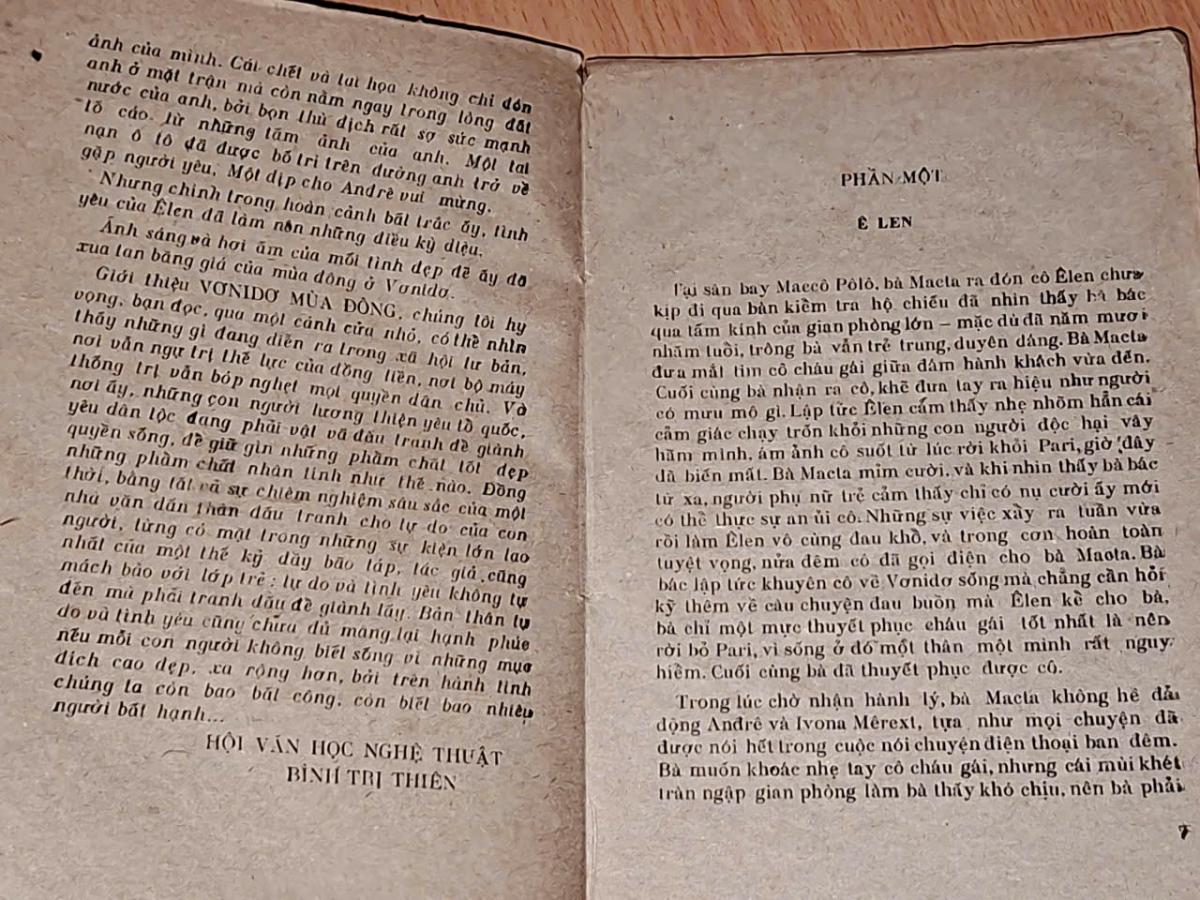 ảnh của mình. Cái chết và tai họa không chỉ đón
anh ở mặt trận mà còn nằm ngay trong lòng đất
nước của anh, bởi bọn thù địch rất sợ sức mạnh
tố cáo. từ những tấm ảnh của anh. Một tai
nạn ô tô đã được bố trí trên đường anh trở về
gặp người yêu, Một dịp cho Andrê vui mừng.
Nhưng chính trong hoàn cảnh bất trắc ấy, tình
yêu của Êlen đã làm nên những điều kỳ diệu.
Ánh sáng và hơi ấm của mối tình đẹp đẽ ấy đã
xua tan băng giá của mùa đông ở Vơnidơ.
Giới thiệu VƠNIDƠ MÙA ĐÔNG, chúng tôi hy
vọng, bạn đọc, qua một cánh cửa nhỏ, có thể nhìn
thấy những gì đang diễn ra trong xã hội tư bản,
nơi vẫn ngự trị thế lực của đồng tiền, nơi bộ máy
thống trị vẫn bóp nghẹt mọi quyền dân chủ. Và
nơi ấy, những con người lương thiện yêu tổ quốc,
yêu dân tộc đang phải vật vã đấu tranh để giành
quyền sống, để giữ gìn những phẩm chất tốt đẹp
những phẩm chất nhân tính như thế nào. Đồng
thời, bằng tất cả sự chiêm nghiệm sâu sắc của một
nhà văn dấn thân đấu tranh cho tự do của con
người, từng có mặt trong những sự kiện lớn lao
nhất của một thế kỷ đầy bão táp, tác giả cũng
mách bảo với lớp trẻ: tự do và tình yêu không tự
đến mà phải tranh đấu để giành lấy. Bản thân tự
do và tình yêu cũng chưa đủ mang lại hạnh phúc
nếu mỗi con người không biết sống vì những mục
đích cao đẹp, xa rộng hơn, bởi trên hành tinh
chúng ta còn bao bất công, còn biết bao nhiêu
người bất hạnh...
HỘI VĂN HỌC NGHỆ THUẬT
BÌNH TRỊ THIÊN
PHẦN MỘT
Ê LEN
Tại sân bay Maccô Pôlô, bà Macta ra đón cô Êlen chưa
kịp đi qua bàn kiểm tra hộ chiếu đã nhìn thấy bà bác
qua tấm kính của gian phòng lớn – mặc dù đã năm mươi
nhăm tuổi, trông bà vẫn trẻ trung, duyên dáng. Bà Macta
đưa mắt tìm cô cháu gái giữa đám hành khách vừa đến.
Cuối cùng bà nhận ra cô, khẽ đưa tay ra hiệu như người
có mưu mô gì. Lập tức Êlen cảm thấy nhẹ nhõm hẳn cái
cảm giác chạy trốn khỏi những con người độc hại vây
hãm mình, ám ảnh cô suốt từ lúc rời khỏi Pari, giờ đây
đã biến mất. Bà Macta mỉm cười, và khi nhìn thấy bà bác
từ xa, người phụ nữ trẻ cảm thấy chỉ có nụ cười ấy mới
có thể thực sự an ủi cô. Những sự việc xẩy ra tuần vừa
rồi làm Êlen vô cùng đau khổ, và trong cơn hoàn toàn
tuyệt vọng, nửa đêm cô đã gọi điện cho bà Macta. Bà
bác lập tức khuyên cô về Vơnidơ sống mà chẳng cần hỏi
kỹ thêm về câu chuyện đau buồn mà Êlen kể cho bà,
bà chỉ một mực thuyết phục cháu gái tốt nhất là nên
rời bỏ Pari, vì sống ở đó một thân một mình rất nguy
hiểm. Cuối cùng bà đã thuyết phục được cô.
Trong lúc chờ nhận hành lý, bà Macta không hề đả
động Andrê và Ivona Mêrext, tựa như mọi chuyện đã
được nói hết trong cuộc nói chuyện điện thoại ban đêm.
Bà muốn khoác nhẹ tay cô cháu gái, nhưng cái mùi khét
tràn ngập gian phòng làm bà thấy khó chịu, nên bà phải
7